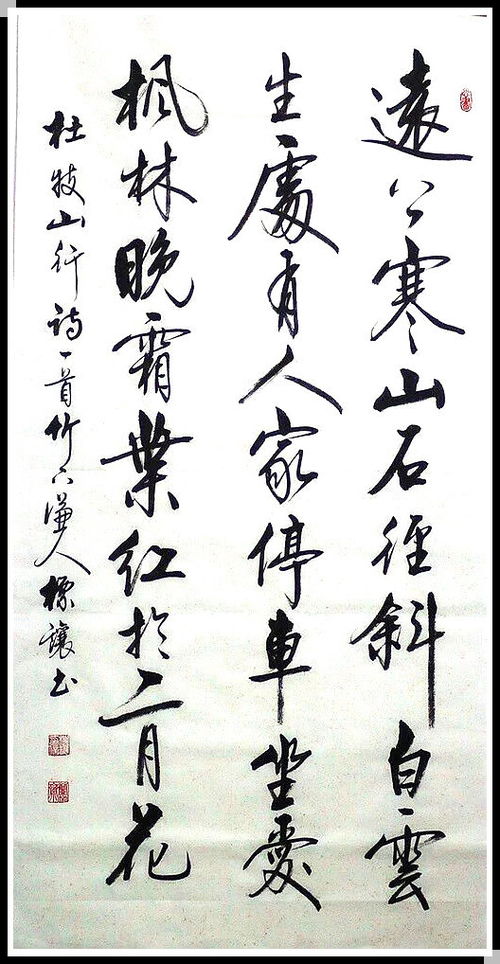 遠上寒山石徑斜白雲
生處有人家停車坐愛
楓林晚霜葉紅於二月花
杜牧山行詩一首竹下謙人標讓书